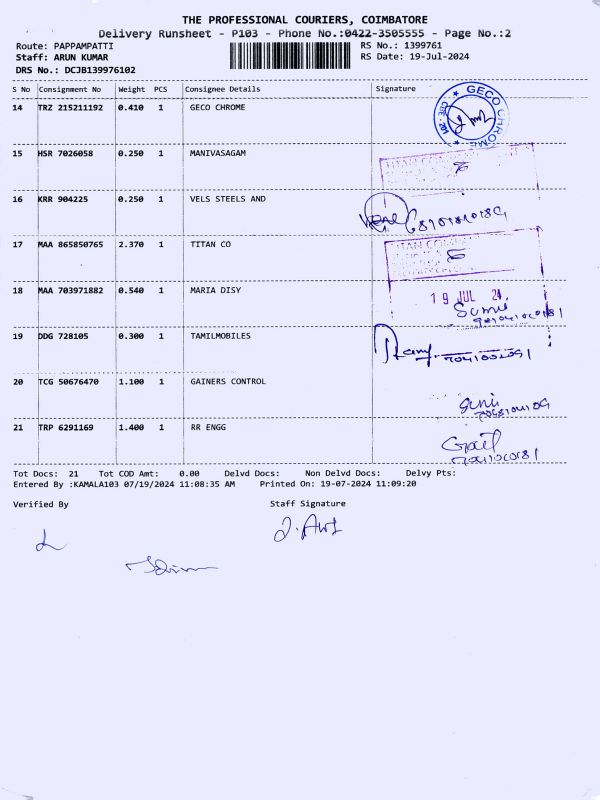 THE PROFESSIONAL COURIERS, COIMBATORE
Delivery Runsheet - P103 - Phone No.:0422-3505555 - Page No.:2
Route: PAPPAMPATTI
Staff: ARUN KUMAR
DRS No.: DCJB139976102
RS No.: 1399761
RS Date: 19-Jul-2024
S No Consignment No Weight PCS Consignee Details Signature
14 TRZ 215211192 0.410 1 GECO CHROME
GECO CHROME
15 HSR 7026058 0.250 1 MANIVASAGAM
16 KRR 904225 0.250 1 VELS STEELS AND
17 MAA 865850765 2.370 1 TITAN CO
18 MAA 703971882 0.540 1 MARIA DISY
19 JUL 24
19 DDG 728105 0.300 1 TAMILMOBILES
20 TCG 50676470 1.100 1 GAINERS CONTROL
21 TRP 6291169 1.400 1 RR ENGG
Tot Docs: 21 Tot COD Amt: 0.00 Delvd Docs: Non Delvd Docs: Delvy Pts:
Entered By :KAMALA103 07/19/2024 11:08:35 AM Printed On: 19-07-2024 11:09:20
Verified By Staff Signature